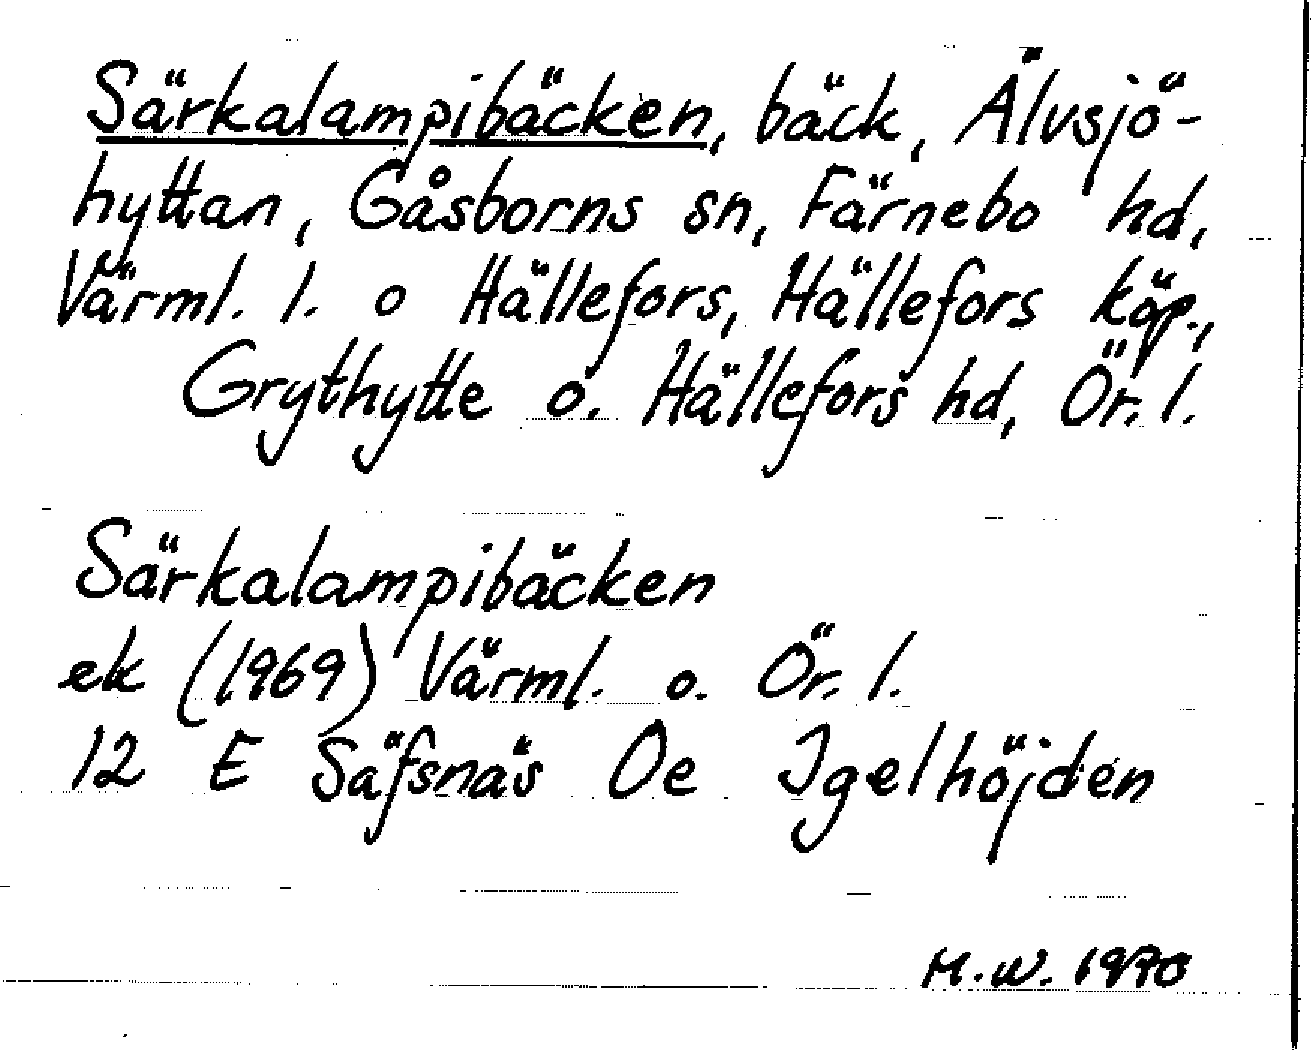 Särkalampibäcken, bäck, Älvsjö-
hyttan, Gåsborns sn, Färnebo hd,
Värml. l. o Hällefors, Hällefors köp.,
Grythytte o. Hällefors hd, Ör. l.
Särkalampibäcken
ek (1969) Värml. o. Ör. l.
12 E Säfsnäs Oe Igelhöjden
H.W. 1970